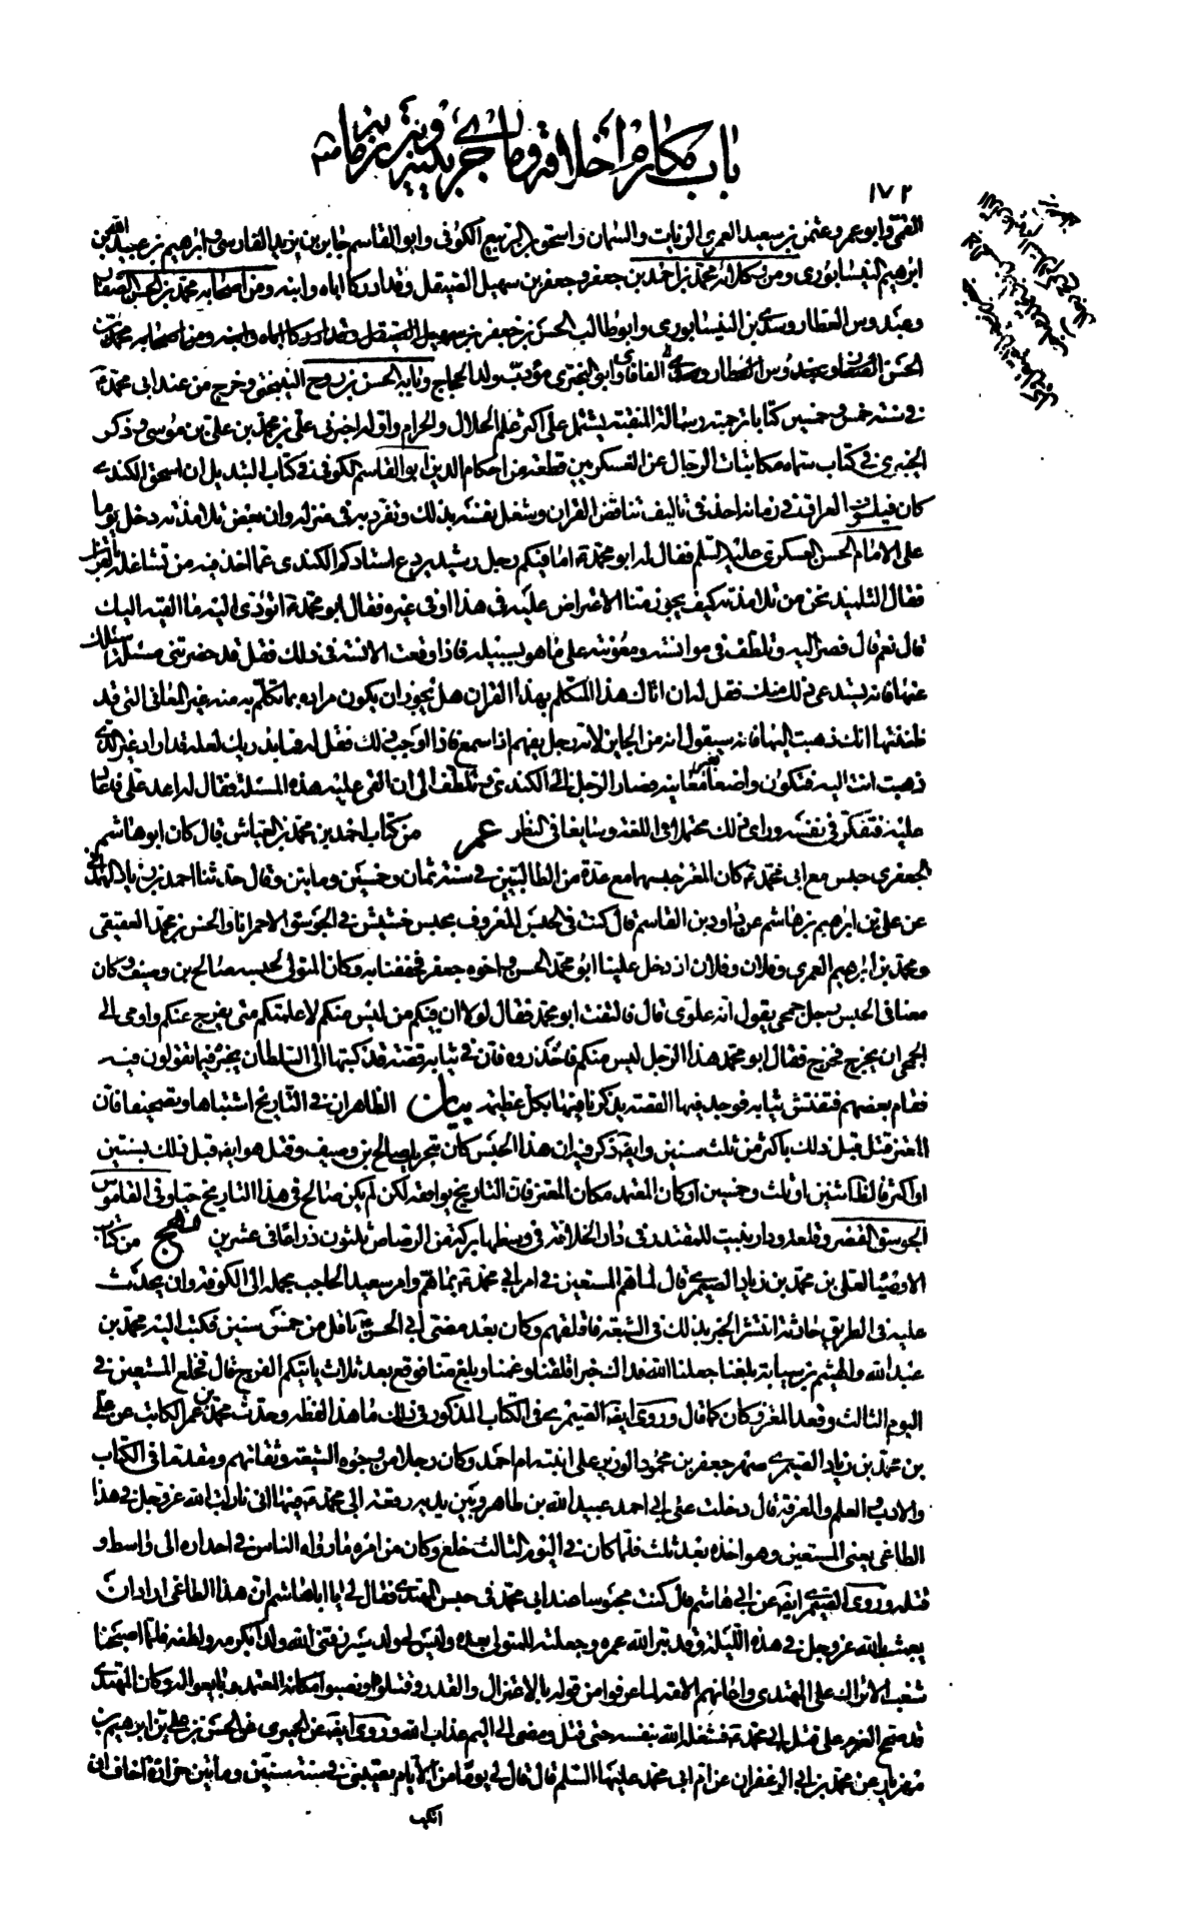 باب مكارم اخلاقه وما جرى بينه وبين زمانه
١٧٢
القمي وابو عمرو عثمن بن سعيد العمري الزيات والسمان واسحق بن الربيع الكوفي وابو القاسم جابر بن يزيد الفارسي وابرهيم بن عبيد الله بن
ابرهيم النيسابوري ومن وكلائه محمد بن احمد بن جعفر وجعفر بن سهيل الصيقل وقد ادركا اباه وابنه ومن اصحابه محمد بن الحسن الصفار
وعبدوس العطار وسري بن النيسابوري وابو طالب الحسن بن جعفر
القافاي ابو البختري مؤدب ولد الحجاج وبابه الحسن بن روح النيبختي وخرج من عند ابي محمد ع
في سنة خمس وخمسين كتابا ترجمته رسالة المنقبة يشتمل على اكثر علم الحلال والحرام واوله اخبرني علي بن محمد بن علي بن موسى وذكر
الخيبري في كتاب سماه مكاتبات الرجال عن العسكريين قطعة من احكام الدين ابو القاسم الكوفي في كتاب التبديل ان اسحق الكندي
كان فيلسوف العراق في زمانه اخذ في تاليف تناقض القران وشغل نفسه بذلك وتفرد به في منزله وان بعض تلامذته دخل يوما
على الامام الحسن العسكري عليه السلم فقال له ابو محمد ع اما فيكم رجل رشيد يردع استادكم الكندي عما اخذ فيه من تشاغله بالقران
فقال التلميذ نحن من تلامذته كيف يجوز منا الاعتراض عليه في هذا او في غيره فقال ابو محمد ع اتؤدي اليه ما القيه اليك
قال نعم قال فصر اليه وتلطف في موانسته ومعونته على ما هو بسبيله فاذا وقعت الانسة في ذلك فقل قد حضرتني مسئلة اسئلك
عنها فانه يستدعي ذلك منك فقل له ان اتاك هذا المتكلم بهذا القران هل يجوز ان يكون مراده بما تكلم به منه غير المعاني التي قد
ظننتها انك ذهبت اليها فانه سيقول انه من الجايز لانه رجل يفهم اذا سمع فاذا اوجب ذلك فقل له فما يدريك لعله قد اراد غير الذي
ذهبت انت اليه فتكون واضعا لغير معانيه فصار الرجل الى الكندي وتلطف الى ان القى عليه هذه المسئلة فقال له اعد علي فاعاد
عليه فتفكر في نفسه وراى ذلك محتملا في اللغة وسايغا في النظر عمر من كتاب احمد بن محمد بن العياش قال كان ابو هاشم
الجعفري حبس مع ابي محمد ع كان المعتز حبسهما مع عدة من الطالبيين في سنة ثمان وخمسين ومايتين وقال حدثنا احمد بن زياد الهمداني
عن علي بن ابرهيم بن هاشم عن داود بن القاسم قال كنت في الحبس المعروف بحبس خشيش في الجوسق الاحمر انا والحسن بن محمد العقيقي
ومحمد بن ابرهيم العمري وفلان وفلان اذ دخل علينا ابو محمد الحسن واخوه جعفر فخففنا به وكان المتولي لحبسه صالح بن وصيف وكان
معنا في الحبس رجل جمحي يقول انه علوي قال فالتفت ابو محمد فقال لولا ان فيكم من ليس منكم لاعلمتكم متى يفرج عنكم واومى الى
الجمحي ان يخرج فخرج فقال ابو محمد هذا الرجل ليس منكم فاحذروه فان في ثيابه قصة قد كتبها الى السلطان يخبره بما تقولون فيه
فقام بعضهم ففتش ثيابه فوجد فيها القصة يذكرنا فيها بكل عظيمة بيان الظاهر ان في التاريخ اشتباها وتصحيفا فان
المعتز قتل قبل ذلك باكثر من ثلث سنين وايضا ذكر فيه ان هذا الحبس كان بتحريك صالح بن وصيف وقتل هو ايضا قبل ذلك بسنتين
او اكثر فالظ اثنين او ثلث وخمسين او كان المعتمد مكان المعتز فان التاريخ يوافقه لكن لم يكن صالح في هذا التاريخ حيا وفي القاموس
الجوسق القصر وقلعة ودار بنيت للمقتدر في دار الخلافة في وسطها بركة من الرصاص ثلثون ذراعا في عشرين مهج من كتاب
الاوصيا لعلي بن محمد بن زياد الصيمري قال لما هم المستعين في امر ابي محمد ع بما هم وامر سعيد الحاجب بحمله الى الكوفة وان يحدث
عليه في الطريق حادثة انتشر الخبر بذلك في الشيعة فاقلقهم وكان بعد مضي ابي الحسن ع باقل من خمس سنين فكتب اليه محمد بن
عبد الله والهيثم بن سيابة بلغنا جعلنا الله فداك خبر اقلقنا وغمنا وبلغ منا فوقع بعد ثلاث ياتيكم الفرج قال فخلع المستعين في
اليوم الثالث وقعد المعتز وكان كما قال وروى ايضا الصيمري في الكتاب المذكور في ذلك ما هذا لفظه وحدث محمد بن عمر الكاتب عن علي
بن محمد بن زياد الصيمري صهر جعفر بن محمود الوزير على ابنته ام احمد وكان رجلا من وجوه الشيعة وثقاتهم ومقدما في الكتاب
والادب والعلم والمعرفة قال دخلت على ابي احمد عبيد الله بن طاهر وبين يديه رقعة ابي محمد ع فيها اني نازلت الله عز وجل في هذا
الطاغي يعني المستعين وهو اخذه بعد ثلث فلما كان في اليوم الثالث خلع وكان من امره ما رواه الناس في احداره الى واسط و
قتله وروى الصيمري ايضا عن ابي هاشم قال كنت محبوسا عند ابي محمد في حبس المهتدي فقال لي يا ابا هاشم ان هذا الطاغي اراد ان
يعبث بالله عز وجل في هذه الليلة وقد بتر الله عمره وجعلته للمتولي بعده وليس لي ولد سيرزقني الله ولدا بكرمه ولطفه فلما اصبحنا
شغب الاتراك على المهتدي واعانهم الامة لما عرفوا من قوله بالاعتزال والقدر وقتلوه ونصبوا مكانه المعتمد وبايعوا له وكان المهتدي
قد صحح العزم على قتل ابي محمد ع فشغله الله بنفسه حتى قتل ومضى الى اليم عذاب الله وروى ايضا عن الحميري عن الحسن بن علي بن ابرهيم بن
مهزيار عن محمد بن ابي الزعفران عن ام ابي محمد عليها السلم قال قال لي يوما من الايام تصيبني في سنة ستين ومأتين حزازة اخاف ان
انكب